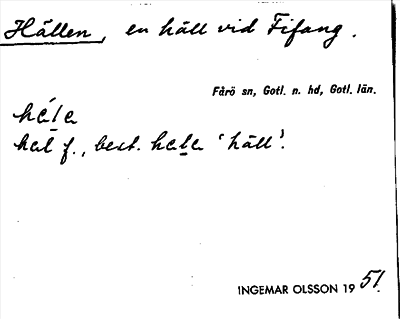 Hällen, en häll vid Fifang.
Fårö sn, Gotl. n. hd, Gotl. län.
hál̲a
hal f., best. hal̲a 'häll'.
INGEMAR OLSSON 1951.